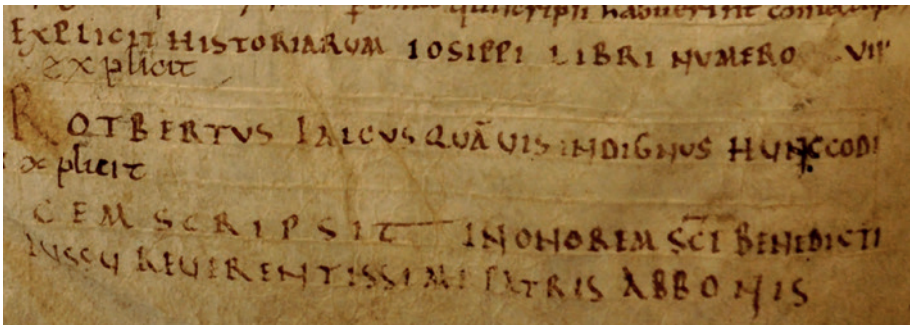 qui scripti habuerint
EXPLICIT HISTORIARUM IOSIPPI LIBRI NUMERO VII
explicit
ROTBERTUS LAICUS QUĀVIS INDIGNUS HUNC CODI
explicit
CEM SCRIPSIT IN HONOREM SC̄I BENEDICTI
IUSSU REVERENTISSIMI PATRIS ABBONIS